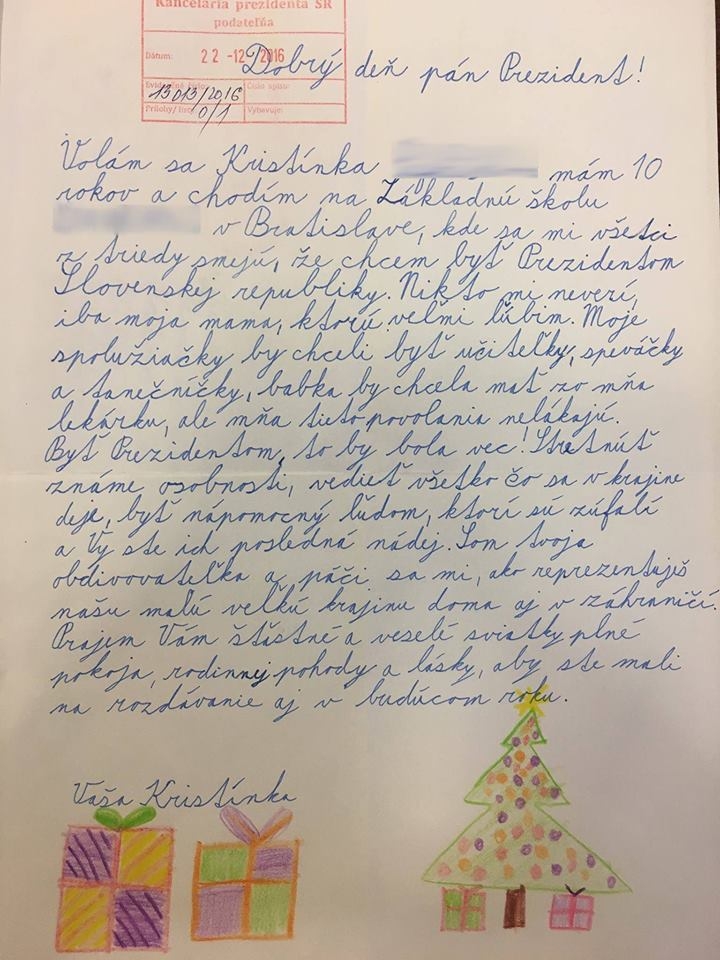 Kancelária prezidenta SR
podateľňa
Dátum: 22 -12- 2016
Evidenčné číslo: Číslo spisu:
13013/2016
Prílohy/listy: Vybavuje:
0/1
Dobrý deň pán Prezident!
Volám sa Kristínka mám 10
rokov a chodím na Základnú školu
v Bratislave, kde sa mi všetci
z triedy smejú, že chcem byť Prezidentom
Slovenskej republiky. Nikto mi neverí,
iba moja mama, ktorú veľmi ľúbim. Moje
spolužiačky by chceli byť učiteľky, speváčky
a tanečníčky, babka by chcela mať zo mňa
lekárku, ale mňa tieto povolania nelákajú.
Byť Prezidentom, to by bola vec! Stretnúť
známe osobnosti, vedieť všetko čo sa v krajine
deje, byť nápomocný ľuďom, ktorí sú zúfalí
a Vy ste ich posledná nádej. Som tvoja
obdivovateľka a páči sa mi, ako reprezentuješ
našu malú veľkú krajinu doma aj v zahraničí.
Prajem Vám šťastné a veselé sviatky plné
pokoja, rodinnej pohody a lásky, aby ste mali
na rozdávanie aj v budúcom roku.
Vaša Kristínka